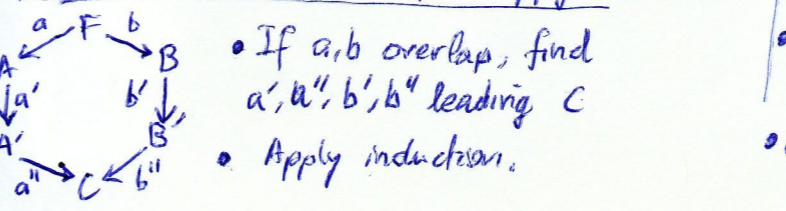 a F b
A B
a' b'
A' B'
a" C b"
• If a,b overlap, find
a', a", b', b" leading C
• Apply induction.